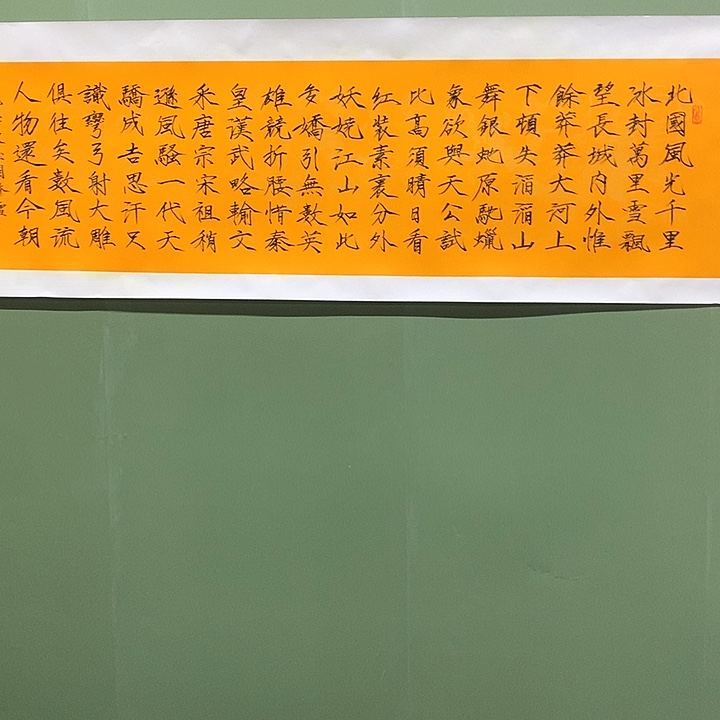 北國風光千里
冰封萬里雪飄
望長城内外惟
餘莽莽大河上
下頓失滔滔山
舞銀虵原馳蠟
象欲與天公試
比高須晴日看
紅裝素裹分外
妖嬈江山如此
多嬌引無數英
雄競折腰惜秦
皇漢武略輸文
采唐宗宋祖稍
遜風騷一代天
驕成吉思汗只
識彎弓射大雕
俱往矣數風流
人物還看今朝